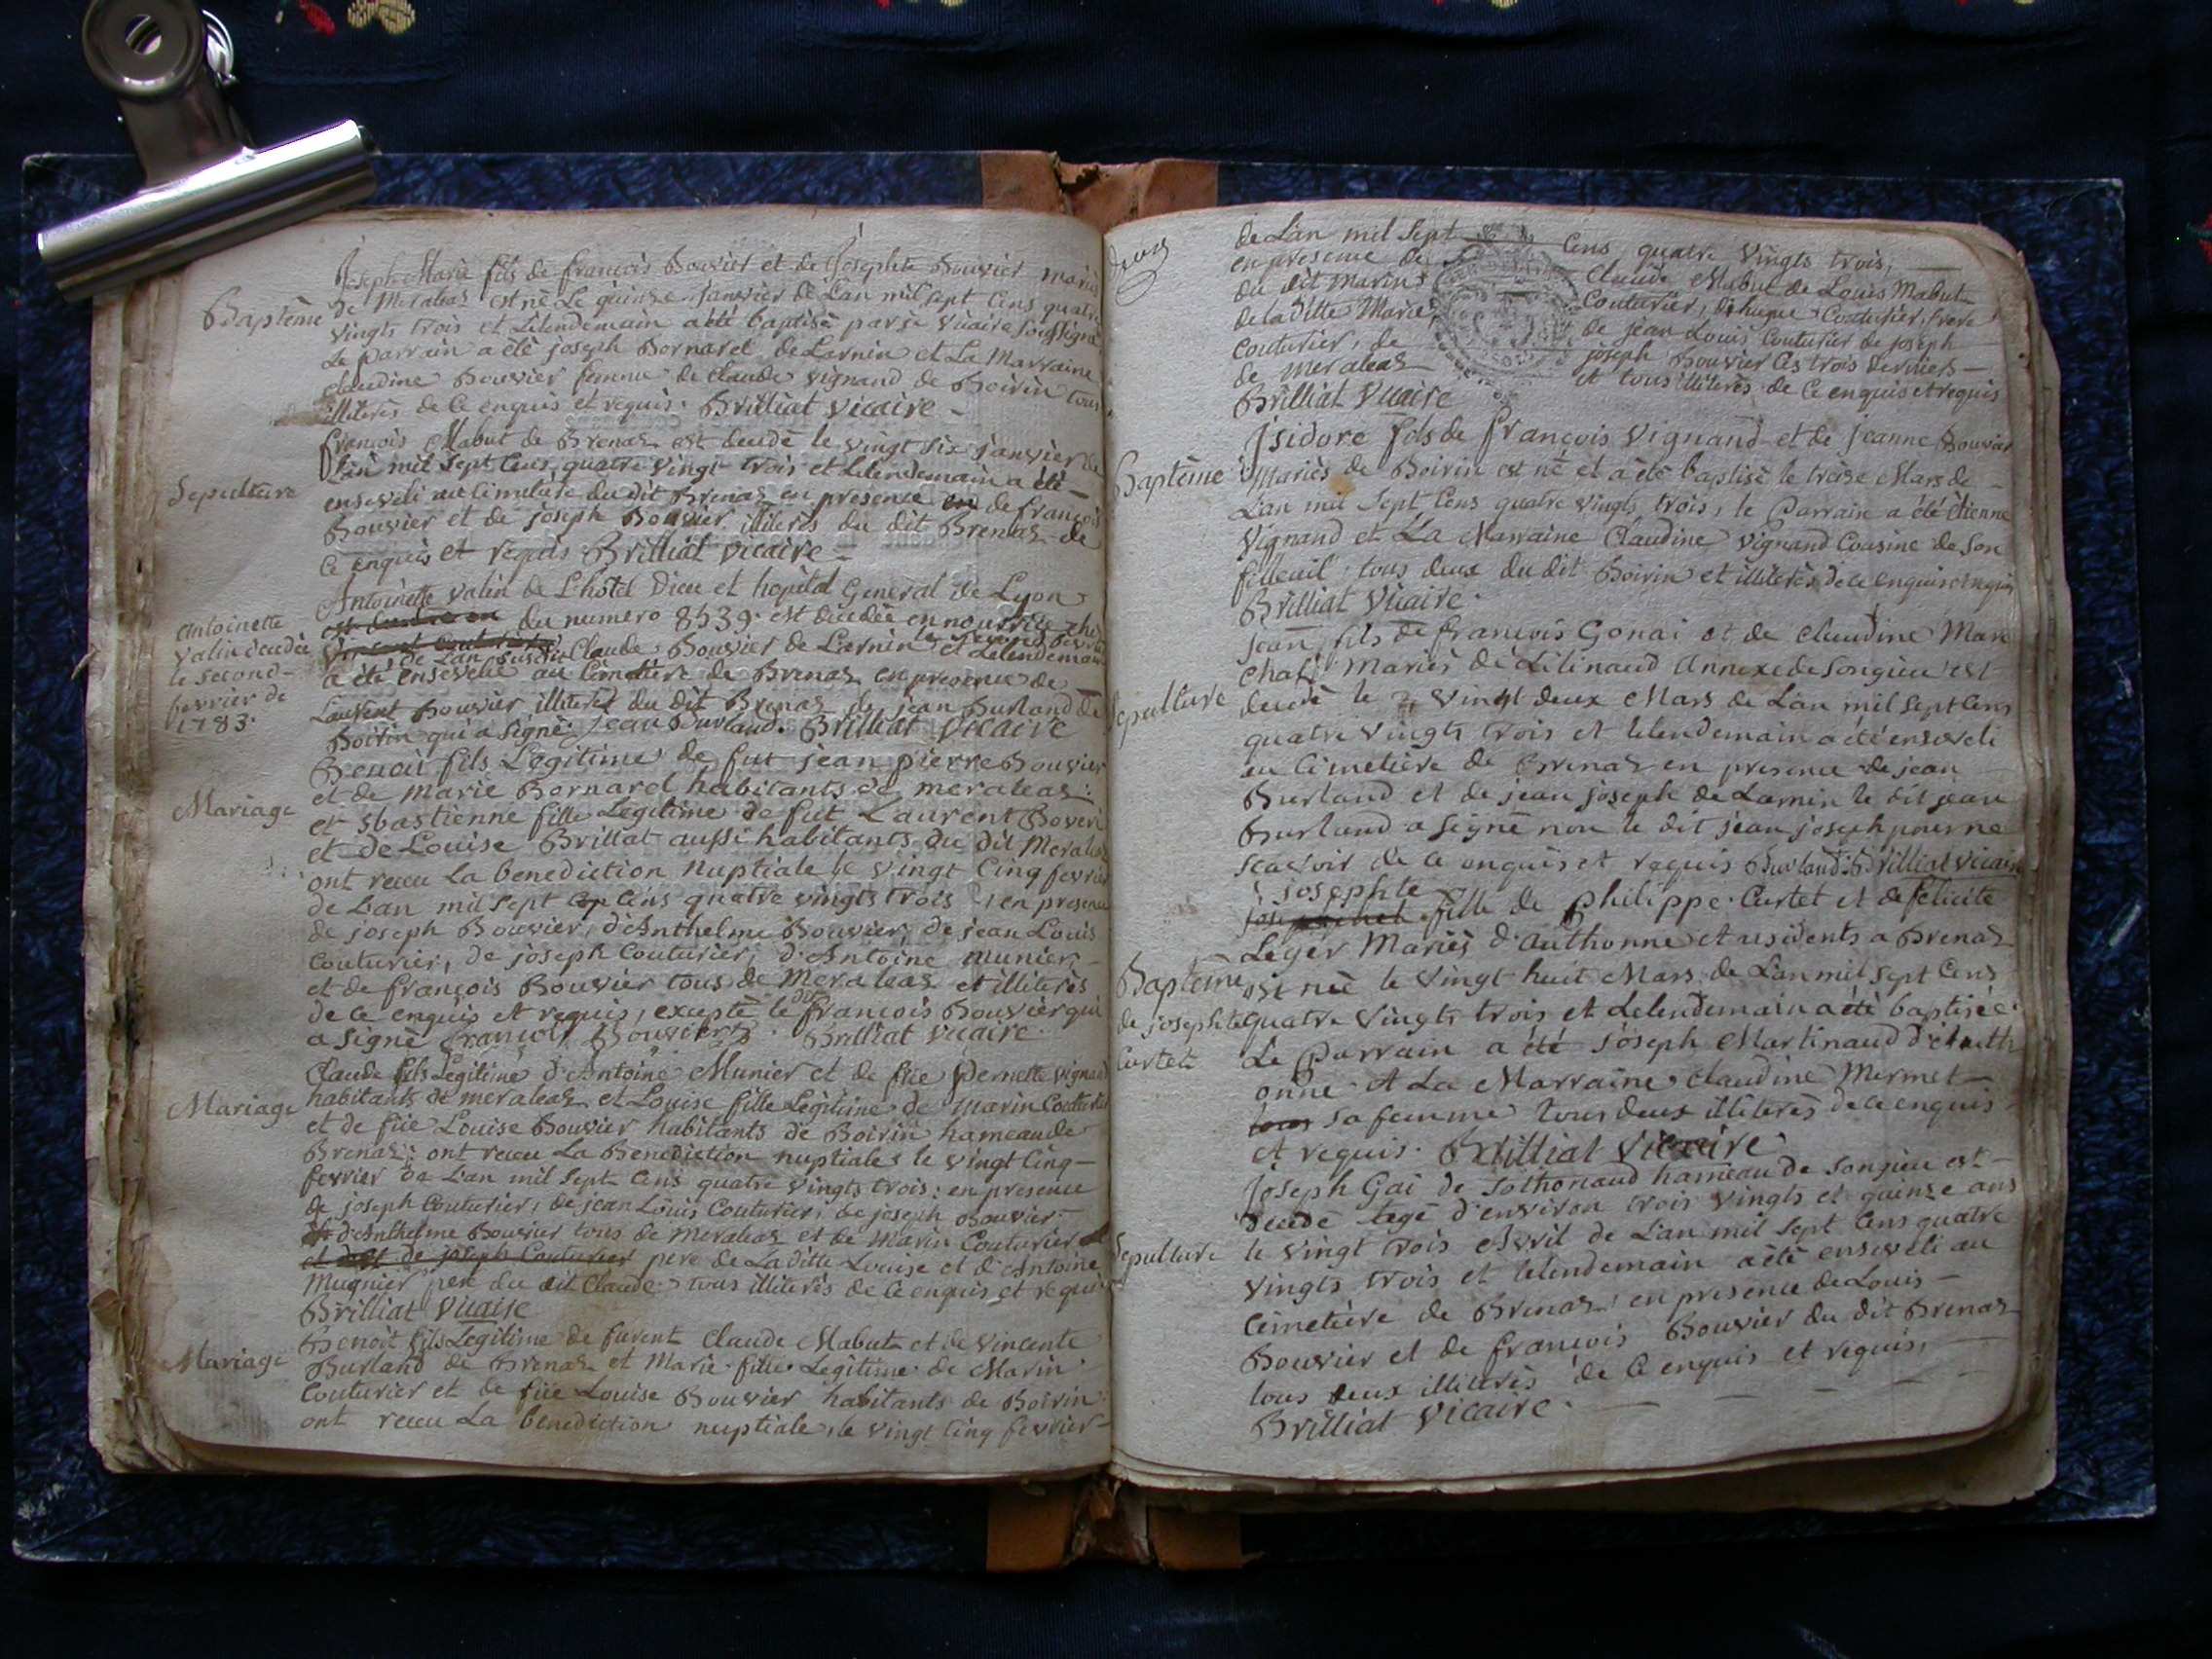 Joseph Marie fils de françois Bouvier et de Josephte Bouvier mariés
Baptême
de Meraleaz est né Le quinze Janvier de L'an mil sept Cens quatre
vingts trois et Lelendemain a été baptisé par je vicaire soussigné
Le parrain a été joseph Bornarel de Larnin et La Marraine
claudine Bouvier femme de claude vignand de Boirin tous
illiterés de Ce enquis et requis. Brilliat vicaire
françois Mabut de Brenaz est decedé le vingt six janvier de
L'an mil sept Cens quatre vingt trois et Lelendemain a été
Sepulture
enseveli au Cimetière du dit Brenaz en presence en de françois
Bouvier et de joseph Bouvier illiterés du dit Brenaz de
Ce enquis et requis Brilliat vicaire
Antoinette valin de L'hotel Dieu et hopital General de Lyon
Antoinette
valin decedée
le second
fevrier de
1783.
du numero 8539. est decedée en nourrice chez
Claude Bouvier de Larnin le second fevrier
de L'an susdit et Lelendemain
a été ensevelie au Cimetière de Brenaz en presence de
Laurent Bouvier illiteré du dit Brenaz de jean Burland de
Boirin qui a signé. Jean Burland. Brilliat vicaire
Benoit fils Legitime de fut jean pierre Bouvier
Mariage
et de Marie Bornarel habitants de meraleaz:
et sbastienne fille Legitime de fut Laurent Boveri
et de Louise Brillat aussi habitants du dit Meraleaz
ont receu La benediction nuptiale le vingt Cinq fevrier
de L'an mil sept Cens quatre vingts trois en presence
de joseph Bouvier, d'Anthelme Bouvier, de jean Louis
Couturier, de joseph Couturier, d'Antoine munier,
et de françois Bouvier tous de Meraleaz et illiterés
de Ce enquis et requis, excepté le dit françois Bouvier qui
a signé françois Bouvier. Brilliat vicaire.
Claude fils Legitime d'Antoine Munier et de füe pernette vignand
Mariage
habitants de meraleaz et Louise fille Legitime de Marin Couturier
et de füe Louise Bouvier habitants de Boirin hameau de
Brenaz; ont receu La Benediction nuptiale le vingt Cinq
fevrier de L'an mil sept Cens quatre vingts trois: en presence
de joseph Couturier, de jean Louis Couturier, de joseph Bouvier
d'Anthelme Bouvier tous de Meraleaz et de Marin Couturier
et de joseph Couturier pere de Laditte Louise et d'Antoine
Mugnier pere du dit Claude tous illiterés de Ce enquis et requis
Brilliat Vicaire
Benoit fils Legitime de furent Claude Mabut et de vincente
Mariage
Burland de Brenaz et Marie fille Legitime de Marin
Couturier et de füe Louise Bouvier habitants de Boirin
ont receu La benediction nuptiale, le vingt Cinq fevrier
deux
de L'an mil sept Cens quatre vingts trois,
en presence de Claude Mabut de Louis Mabut
du dit Marin Couturier, de hugue Couturier, frere
de la ditte Marie, de jean Louis Couturier de joseph
Couturier, de joseph Bouvier Les trois derniers
de meraleaz et tous illiterés de Ce enquis et requis
Brilliat Vicaire
Isidore fils de françois Vignand et de jeanne Bouvier
Baptême
Mariés de Boirin est né et a été baptisé le treize Mars de
L'an mil sept Cens quatre vingts trois, le Parrain a été étienne
Vignand et La Marraine Claudine vignand Cousine de son
filleuil tous deux du dit Boirin et illiterés de ce enquis et requis
Brilliat Vicaire.
jean fils de françois Gonai et de claudine Mar
chat mariés de Lilinaud Annexe de songieu est
Sepulture
decedé le vingt deux Mars de L'an mil sept Cens
quatre vingts trois et lelendemain a été enseveli
au Cimetière de Brenaz en presence de jean
Burland et de jean joseph de Larnin le dit jean
Burland a signé non le dit jean joseph pour ne
scavoir de Ce enquis et requis Burland. Brilliat vicaire
josephte
fille de philippe Curtet et de felicité
Leger Mariés d'authonne et residents a Brenaz
Baptême
de josephte
Curtet
est née le vingt huit Mars de L'an mil sept Cens
quatre vingts trois et Lelendemain a été baptisée
Le Parrain a été joseph Martinaud d'Auth
onne et La Marraine claudine Mermet
tous sa femme tous deux illiterés de ce enquis
et requis. Brilliat Vicaire.
Joseph Gai de sothonaud hameau de songieu est
decedé agé d'environ trois vingts et quinze ans
Sepulture
le vingt trois Avril de L'an mil sept Cens quatre
vingts trois et lelendemain a été enseveli au
Cimetière de Brenaz en presence de Louis
Bouvier et de françois Bouvier du dit Brenaz
tous deux illiterés de Ce enquis et requis,
Brilliat Vicaire.